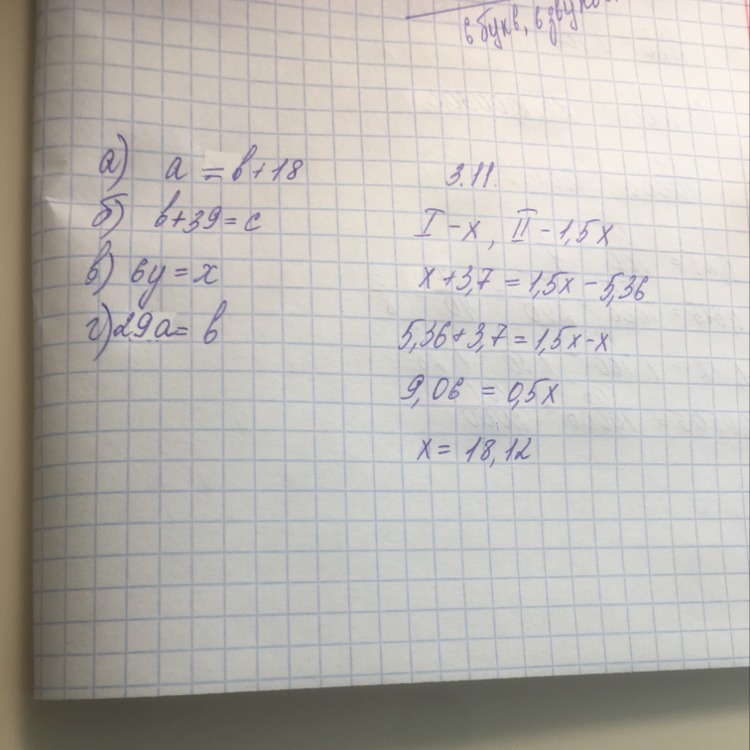 6 букв, 6 звуков.
а) a = b+18
б) b+39=c
в) 6y=x
г) 29a= b
3.11.
I - x, II - 1,5x
x+3,7 = 1,5x - 5,36
5,36+3,7 = 1,5x-x
9,06 = 0,5x
x= 18,12